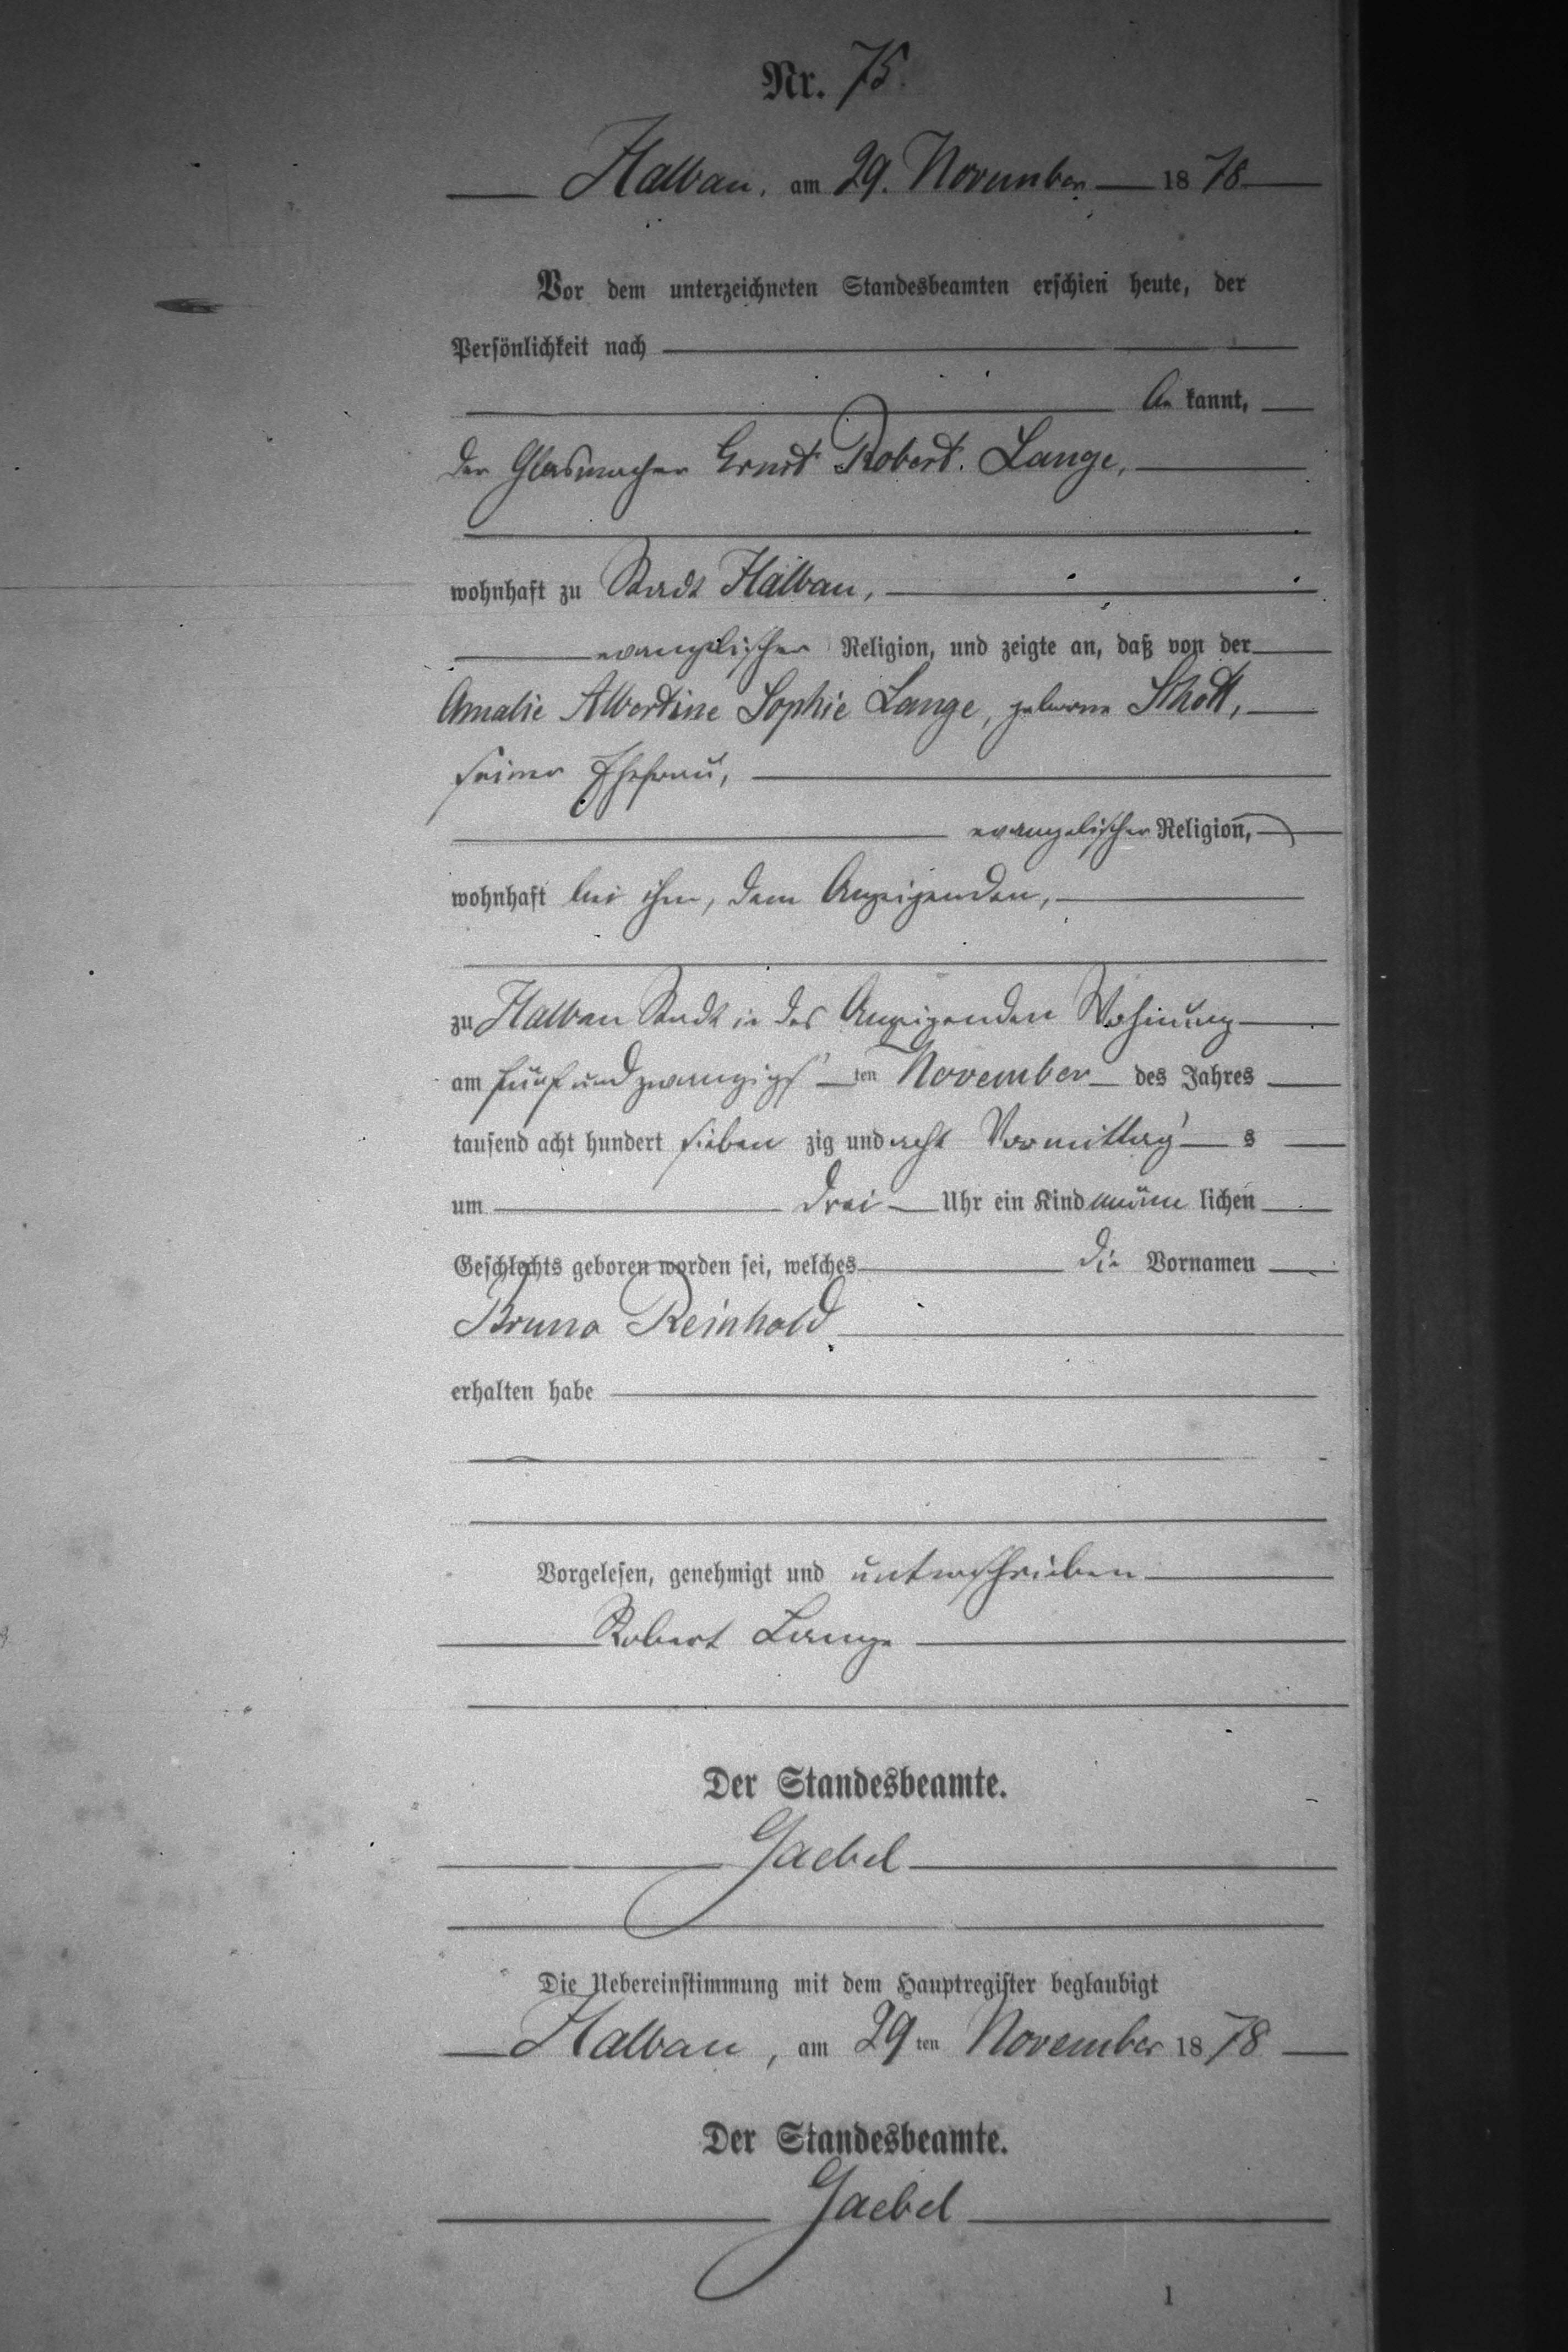 Nr. 75.
Halbau, am 29. November 1878
Vor dem unterzeichneten Standesbeamten erschien heute, der
Persönlichkeit nach
be kannt,
der Glasmacher Ernst Robert Lange,
wohnhaft zu Stadt Halbau,
evangelischer Religion, und zeigte an, daß von der
Amalie Albertine Sophie Lange, geborne Schott,
seiner Ehefrau,
evangelischer Religion,
wohnhaft bei ihm, dem Anzeigenden,
zu Halbau Stadt in des Anzeigenden Wohnung
am fünf und zwanzigs ten November des Jahres
tausend acht hundert sieben zig und acht Vormittag s
um drei Uhr ein Kind männ lichen
Geschlechts geboren worden sei, welches die Vornamen
Bruno Reinhold
erhalten habe
Vorgelesen, genehmigt und unterschrieben
Robert Lange
Der Standesbeamte.
Gaebel
Die Uebereinstimmung mit dem Hauptregister beglaubigt
Halbau, am 29 ten November 1878
Der Standesbeamte.
Gaebel
1